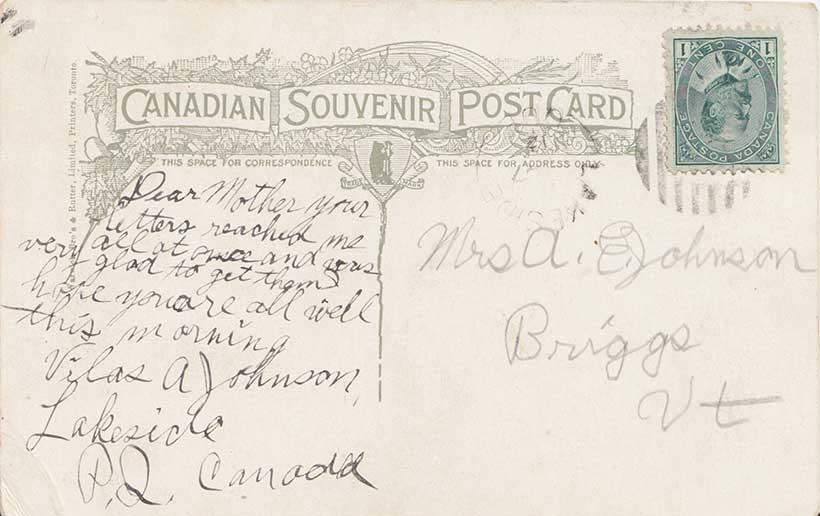 CANADIAN SOUVENIR POST CARD
THIS SPACE FOR CORRESPONDENCE
THIS SPACE FOR ADDRESS ONLY.
TRADE MARK
& Rutter, Limited, Printers, Toronto.
Dear Mother your
letters reached me
all at once and was
very glad to get them
hope you are all well
this morning
Vilas A Johnson,
Lakeside
P.Q. Canada
Mrs A. E Johnson
Briggs
Vt
1 ONE CENT 1
CANADA POSTAGE